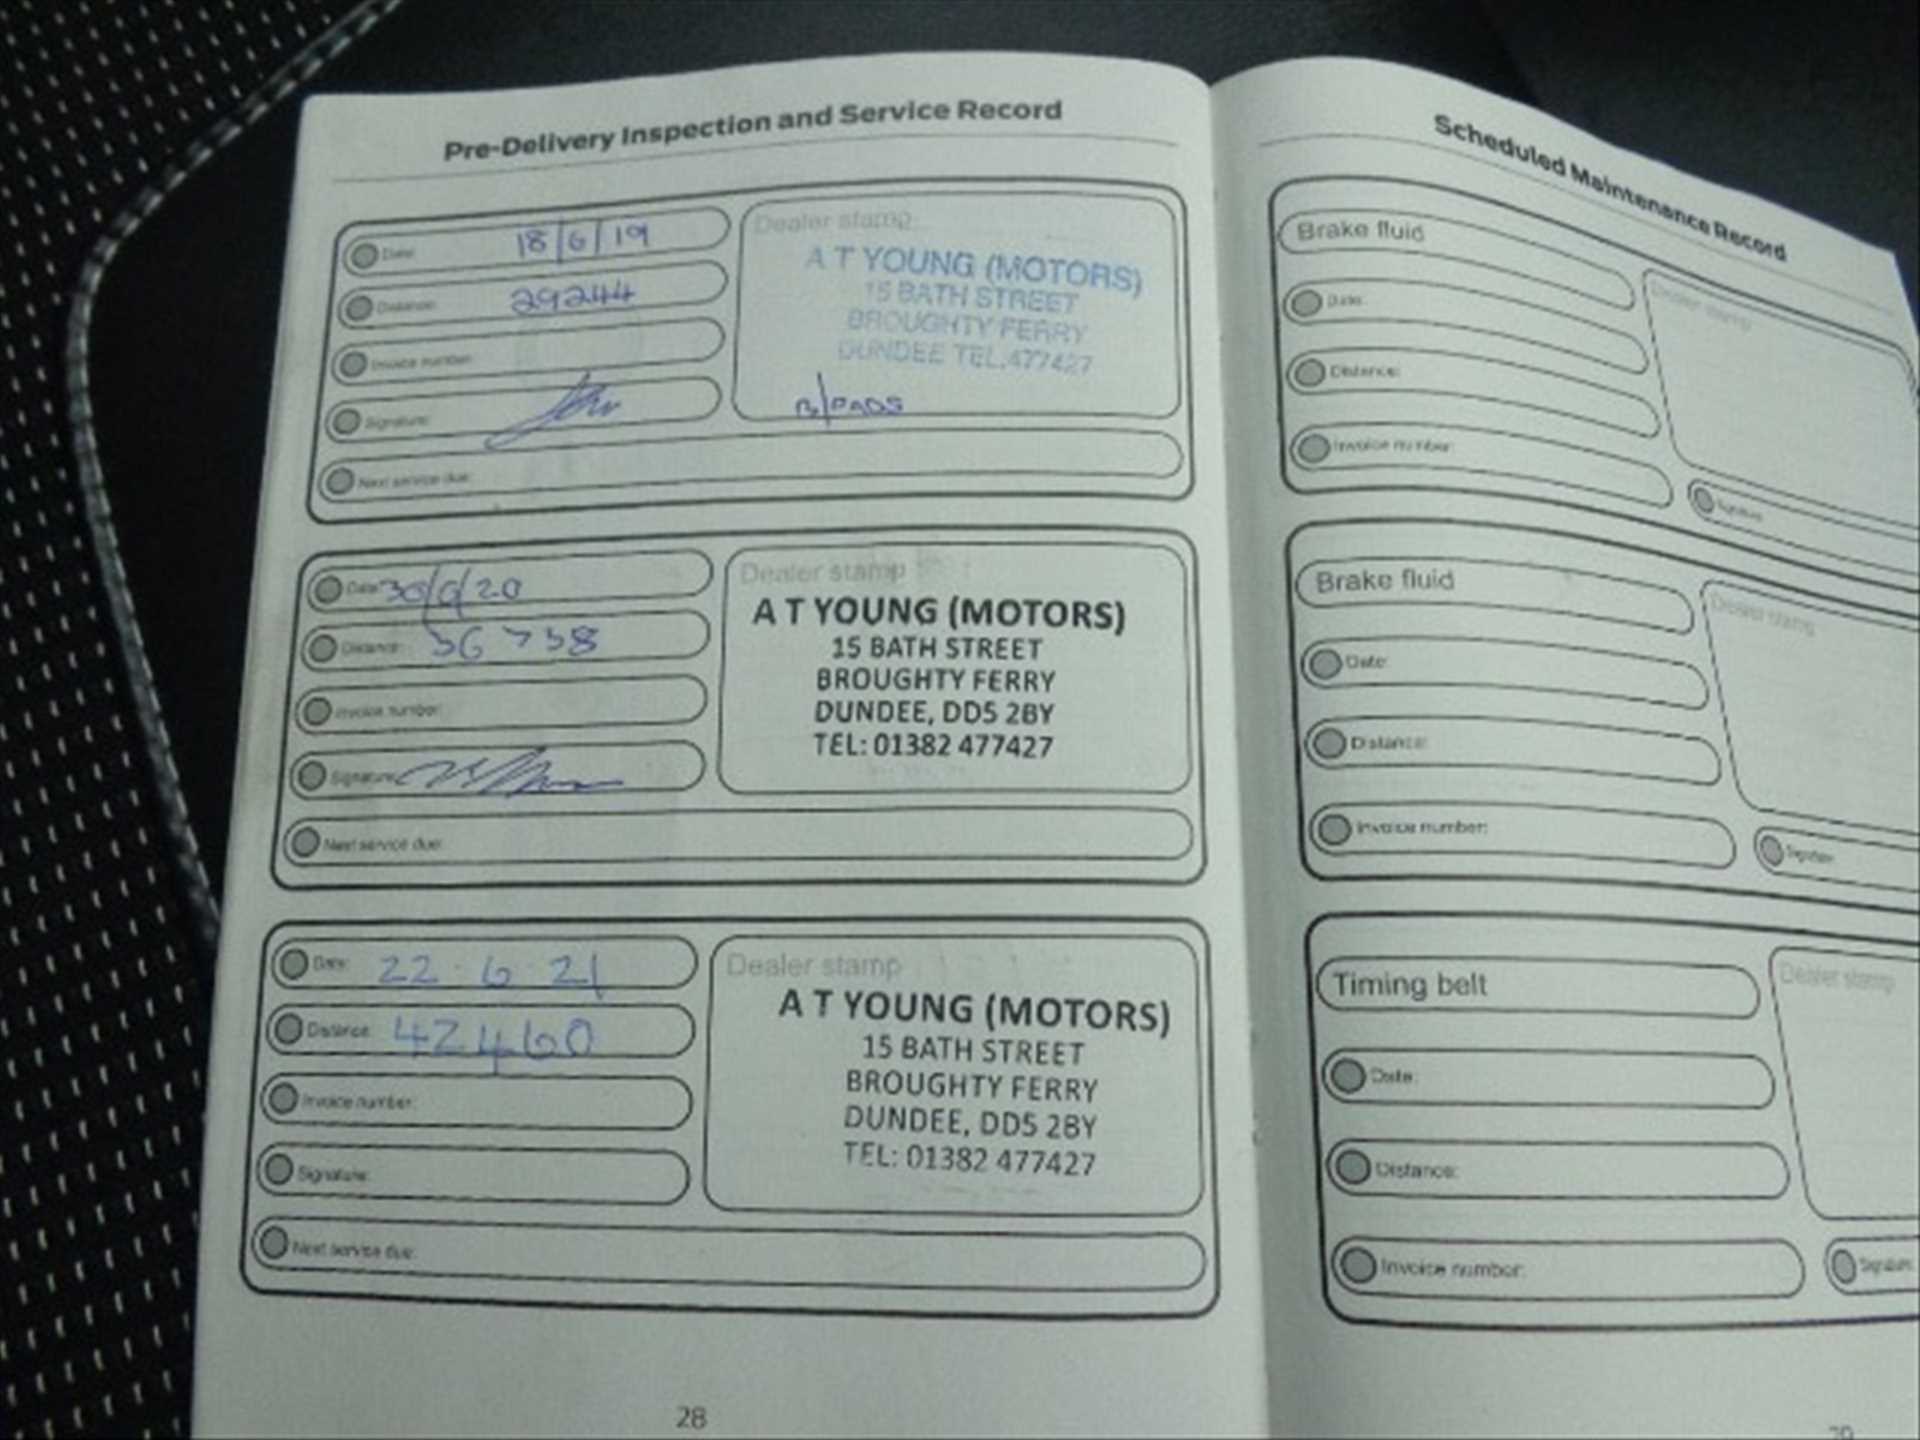 Pre-Delivery Inspection and Service Record
Date: 18/6/19
Distance: 29244
Invoice number:
Signature:
Next service due:
Dealer stamp
A T YOUNG (MOTORS)
15 BATH STREET
BROUGHTY FERRY
DUNDEE TEL.477427
B/PADS
Date:
Distance: 36738
Invoice number:
Signature:
Next service due:
Dealer stamp
A T YOUNG (MOTORS)
15 BATH STREET
BROUGHTY FERRY
DUNDEE, DD5 2BY
TEL: 01382 477427
Date: 22·6·21
Distance: 42460
Invoice number:
Signature:
Next service due:
Dealer stamp
A T YOUNG (MOTORS)
15 BATH STREET
BROUGHTY FERRY
DUNDEE, DD5 2BY
TEL: 01382 477427
28
Scheduled Maintenance Record
Brake fluid
Date:
Distance:
Invoice number:
Dealer stamp
Signature:
Brake fluid
Date:
Distance:
Invoice number:
Dealer stamp
Signature:
Timing belt
Date:
Distance:
Invoice number:
Dealer stamp
Signature: